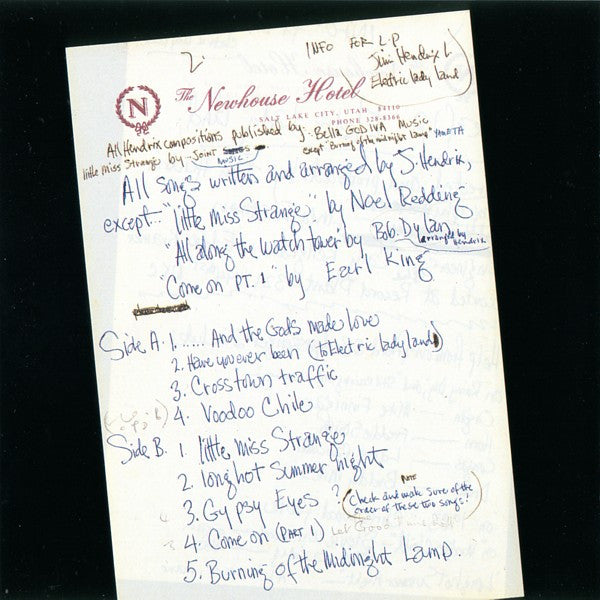 2.
INFO FOR L.P
Jimi Hendrix
Electric lady land
N
The Newhouse Hotel
SALT LAKE CITY, UTAH 84110
PHONE 328-8166
All Hendrix compositions published by: Bella GODIVA Music
except "Burning of the midnight Lamp" YAMETA
little miss Strange by JOINT
MUSIC
All songs written and arranged by J. Hendrix,
except... "little miss Strange" by Noel Redding
"All along the watch tower" by Bob Dylan
arranged by hendrix
"Come on PT. 1" by Earl King
Side A. 1. ..... And the Gods made love
2. Have you ever been (to Electric lady land)
3. Crosstown traffic
4. Voodoo Chile
Side B. 1. little miss Strange
2. long hot summer night
3. Gypsy Eyes ?
NOTE
(Check and make sure of the
order of these two songs!)
4. Come on (PART 1) Let Good Time Roll
5. Burning of the Midnight Lamp.